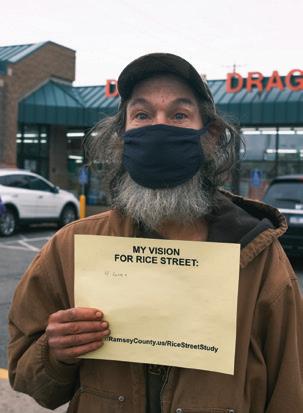 DRAG
MY VISION
FOR RICE STREET:
RamseyCounty.us/RiceStreetStudy